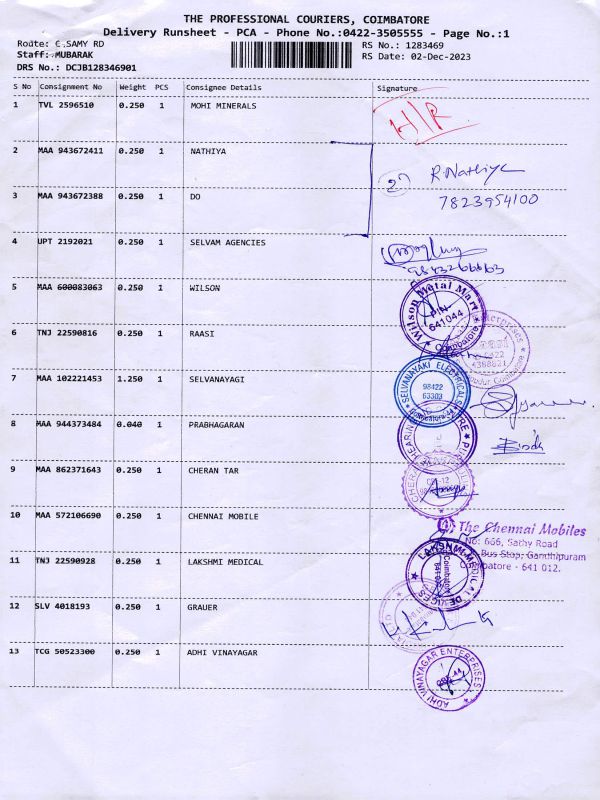 THE PROFESSIONAL COURIERS, COIMBATORE
Delivery Runsheet - PCA - Phone No.:0422-3505555 - Page No.:1
Route: C.SAMY RD
RS No.: 1283469
Staff: MUBARAK
RS Date: 02-Dec-2023
DRS No.: DCJB128346901
S No Consignment No Weight PCS Consignee Details Signature
1 TVL 2596510 0.250 1 MOHI MINERALS
2 MAA 943672411 0.250 1 NATHIYA
27 R.Nathiya
3 MAA 943672388 0.250 1 DO
7823954100
4 UPT 2192021 0.250 1 SELVAM AGENCIES
5 MAA 600083063 0.250 1 WILSON
Wilson Matal Mart
PIN
641044
Coimbatore
6 TNJ 22590816 0.250 1 RAASI
0422
4388821
Coimbatore
7 MAA 102221453 1.250 1 SELVANAYAGI
SELVANAYAKI ELECTRICALS
98422
63303
8 MAA 944373484 0.040 1 PRABHAGARAN
9 MAA 862371643 0.250 1 CHERAN TAR
CHERAN
10 MAA 572106690 0.250 1 CHENNAI MOBILE
The Chennai Mobiles
No: 666, Sathy Road
Bus Stop, Gandhipuram
Coimbatore - 641 012.
11 TNJ 22590928 0.250 1 LAKSHMI MEDICAL
LAKSHMI MEDICAL DEVICES
Coimbatore
12 SLV 4018193 0.250 1 GRAUER
13 TCG 50523300 0.250 1 ADHI VINAYAGAR
ADHI VINAYAGAR ENTERPRISES